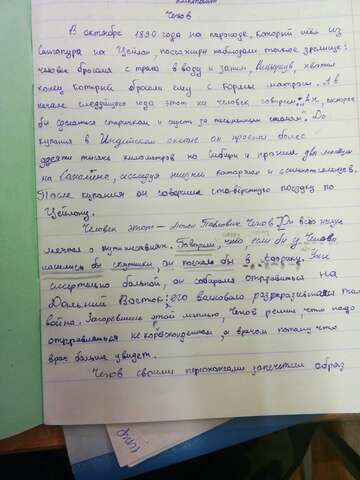 Чехов
В октябре 1890 года на пароходе, который шёл из
Сингапура на Цейлон, пассажиры наблюдали такое зрелище:
человек бросался с трапа в воду и затем, вынырнув, хватал
конец, который бросали ему с кормы матросы. А в
начале следующего года этот же человек говорил: Ах, скорее
бы сделаться старичком и сидеть за письменным столом. До
купания в Индийском океане он проехал более
десяти тысяч километров по Сибири и прожил два месяца
на Сахалине, исследуя жизнь каторжан и ссыльнопоселенцев.
После купания он совершил сто-вёрстную поездку по
Цейлону.
Человек этот – Антон Павлович Чехов. Он всю жизнь
мечтал о путешествиях. Говорили, что, если бы у Чехова
нашлись бы спутники, он поехал бы в Африку. Уже
смертельно больной, он собирался отправиться на
Дальний Восток; его взволновало разразившаяся там
война. Загоревшись этой мыслью, Чехов решил, что надо
отправляться не корреспондентом, а врачом, потому что
врач больше увидит.
Чехов своими персонажами запечатлел образ